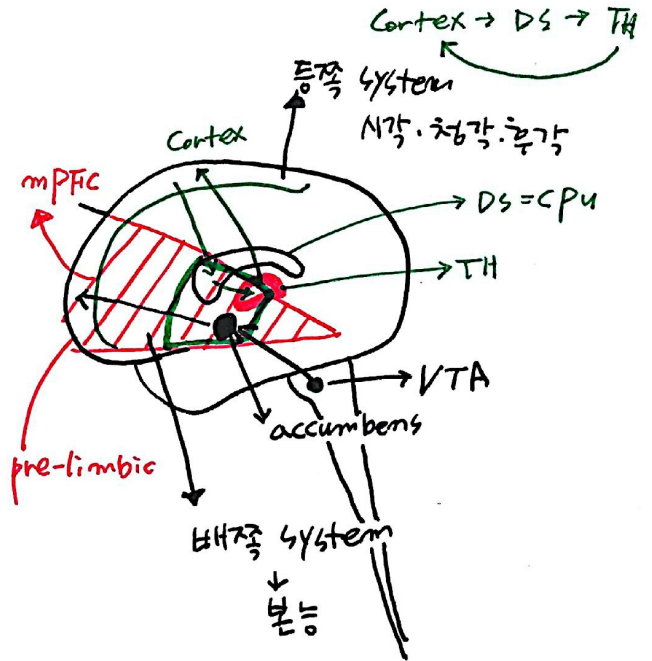 Cortex → DS → TH
등쪽 system
시각·청각·후각
Cortex
mPFC
DS=CPu
TH
VTA
accumbens
pre-limbic
배쪽 system
↓
본능